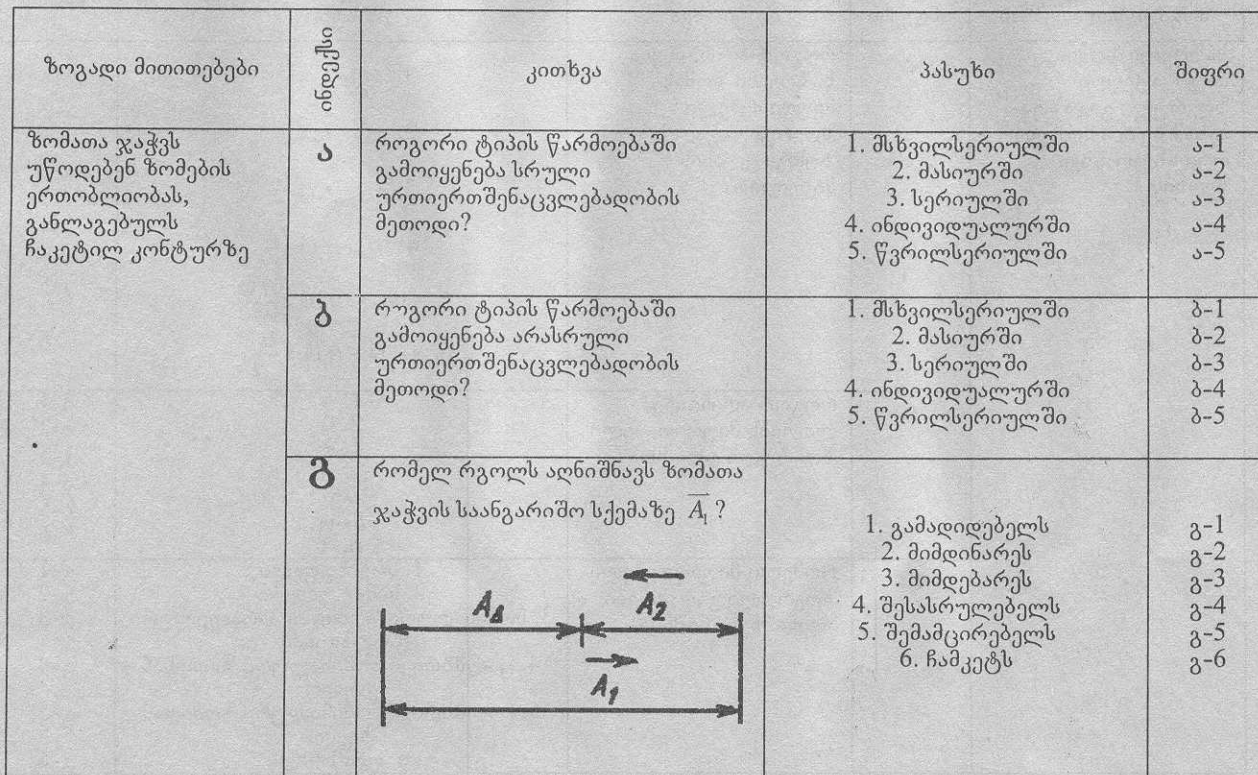 ზოგადი მითითებები
ინდექსი
კითხვა
პასუხი
შიფრი
ზომათა ჯაჭვს
უწოდებენ ზომების
ერთობლიობას,
განლაგებულს
ჩაკეტილ კონტურზე
ა
როგორი ტიპის წარმოებაში
გამოიყენება სრული
ურთიერთშენაცვლებადობის
მეთოდი?
1. მსხვილსერიულში
2. მასიურში
3. სერიულში
4. ინდივიდუალურში
5. წვრილსერიულში
ა-1
ა-2
ა-3
ა-4
ა-5
ბ
როგორი ტიპის წარმოებაში
გამოიყენება არასრული
ურთიერთშენაცვლებადობის
მეთოდი?
1. მსხვილსერიულში
2. მასიურში
3. სერიულში
4. ინდივიდუალურში
5. წვრილსერიულში
ბ-1
ბ-2
ბ-3
ბ-4
ბ-5
გ
რომელ რგოლს აღნიშნავს ზომათა
ჯაჭვის საანგარიშო სქემაზე A̅₁ ?
A_Δ
A₂
A₁
1. გამადიდებელს
2. მიმდინარეს
3. მიმდებარეს
4. შესასრულებელს
5. შემამცირებელს
6. ჩამკეტს
გ-1
გ-2
გ-3
გ-4
გ-5
გ-6